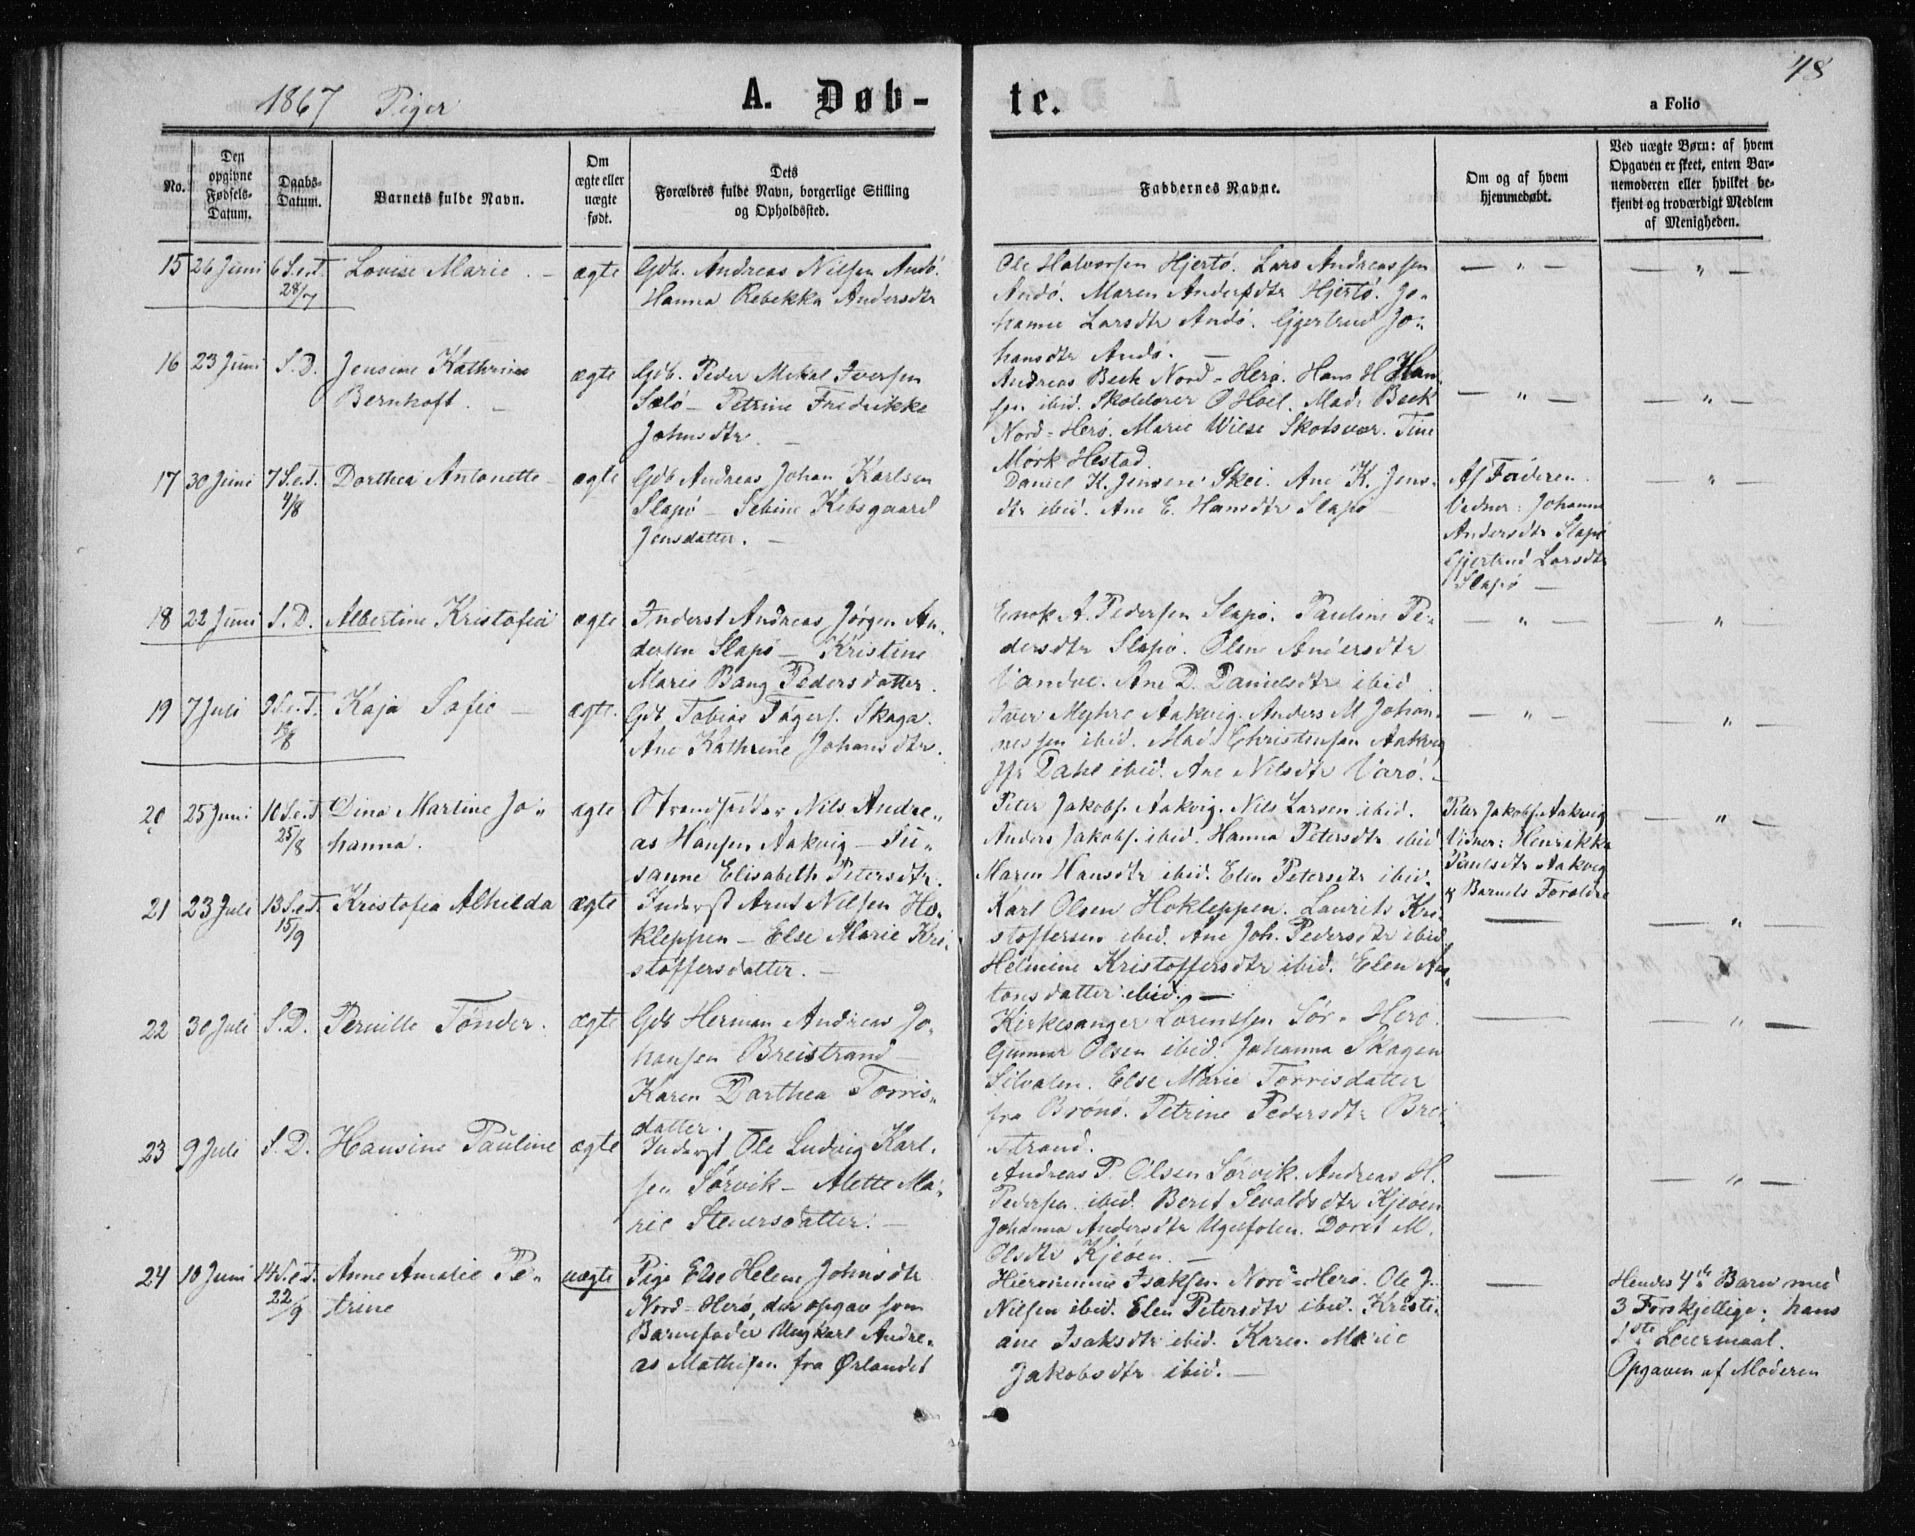 1867 Piger
A. Døb-
te.
a Folio
48
No.
Den opgivne Fødsels-Datum.
Daabs-Datum.
Barnets fulde Navn.
Om ægte eller uægte født.
Dets
Forældres fulde Navn, borgerlige Stilling
og Opholdssted.
Faddernes Navne.
Om og af hvem
hjemmedøbt.
Ved uægte Børn: af hvem
Opgaven er skeet, enten Bar-
nemoderen eller hvilket be-
kjendt og troværdigt Medlem
af Menigheden.
15 26 Juni 6 S.e.T. 28/7 Lovise Marie. – ægte
Gdb. Andreas Nilsen Andø.
Hanna Rebekka Andersdtr
Ole Halvorsen Hjertø. Lars Andreassen
Andø. Maren Andersdtr Hjertø. Jo-
hanne Larsdtr Andø. Gjertrud Jo-
hansdtr Andø. –
— " —
— " —
16 23 Juni S.D. Jensine Kathrine
Bernhoft. – ægte
Gdb. Peder Mikal Iversen
Solø – Petrine Fredrikke
Johnsdtr. –
Andreas Beck Nord-Herø. Hans H Han-
sen ibid. Skolelærer O Hoel. Mad. Beck
Nord-Herø. Marie Wiese Skotsvær. Tine
Mørk Hestad.
— " —
— " —
17 30 Juni 7 S.e.T. 4/8 Dorthea Antonette – ægte
Gdb Andreas Johan Karlsen
Slapø – Sebine Kebsgaard
Jensdatter. –
Daniel K. Jensen Skei. Ane K. Jens-
dtr ibid. Ane E. Hansdtr Slapø
Af Faderen.
Vidner: Johanna
Andersdtr Slapø
Gjertrud Larsdtr
Slapø –
— " —
18 22 Juni S.D. Albertine Kristofia ægte
Inderst Andreas Jørgen An-
dersen Slapø – Kristine
Marie Bang Pedersdatter.
Enok A. Pedersen Slapø. Pauline Pe-
dersdtr Slapø. Oline Andersdtr
Vandve. Ane D. Danielsdtr ibid.
— " —
— " —
19 7 Juli 9 S.e.T. 18/8 Kaja Sofie – ægte.
Gdb. Tobias Tøgers. Skaga.
Ane Kathrine Johansdtr.
Iver Myhre Aakvig. Anders M Johan-
nessen ibid. Mad. Christensen Aakvig
Jfr Dahl ibid. Ane Nilsdtr Varø. –
— " —
— " —
20 25 Juni 10 S.e.T. 25/8 Dina Martine Jo-
hanna. ægte
Strandsidder Nils Andre-
as Hansen Aakvig – Su-
sanne Elisabeth Petersdtr.
Peter Jakobs. Aakvig. Nils Larsen ibid.
Anders Jakobs. ibid. Hanna Petersdtr ibid
Maren Hansdtr ibid. Elen Petersdtr ibid.
Peter Jakobs. Aakvig
Vidner: Henrikke
Paulsdtr Aakvig
& Barnets Forældre
— " —
21 23 Juli 13 S.e.T. 15/9 Kristofia Alhilda ægte
Inderst Arnt Nilsen Ho-
kleppen – Else Marie Kri-
stoffersdatter. –
Karl Olsen Hokleppen. Laurits Kri-
stoffersen ibid. Ane Joh. Pedersdtr ibid
Helmine Kristoffersdtr ibid. Elen An-
tonsdatter ibid. –
—
— " —
22 30 Juli S.D. Pernille Tønder. ægte
Gdb Herman Andreas Jo-
hansen Breistrand –
Karen Dorthea Torris-
datter.
Kirkesanger Lorentsen Sør-Herø.
Gunnar Olsen ibid. Johanna Skagen
Silvalen. Else Marie Torrisdatter
fra Brønø. Petrine Pedersdtr Brei-
strand.
—
— " —
23 9 Juli S.D. Hansine Pauline ægte
Inderst Ole Ludvig Karl-
sen Sørvik – Alette Ma-
rie Steuersdatter. –
Andreas P. Olsen Sørvik. Andreas H.
Pedersen ibid. Beret Sivaldsdtr Kjeøen
Johanna Andersdtr Ugelsfolen. Dorit M.
Olsdtr Kjeøen. –
—
— " —
24 10 Juni 14 S.e.T. 22/9 Anne Amalie Pe-
trine uægte
Pige Else Helene Johnsdtr
Nord-Herø, der opgav som
Barnefader Ungkarl Andre-
as Mathisen fra Ørlandet
Hieronimus Isaksen Nord-Herø. Ole J.
Nilsen ibid. Elen Petersdtr ibid. Kristi-
ane Isaksdtr ibid. Karen Marie
Jakobsdtr ibid. –
—
Hendes 4de Barn med
3 Forskjellige; hans
1ste Leiermaal.
Opgaven af Moderen